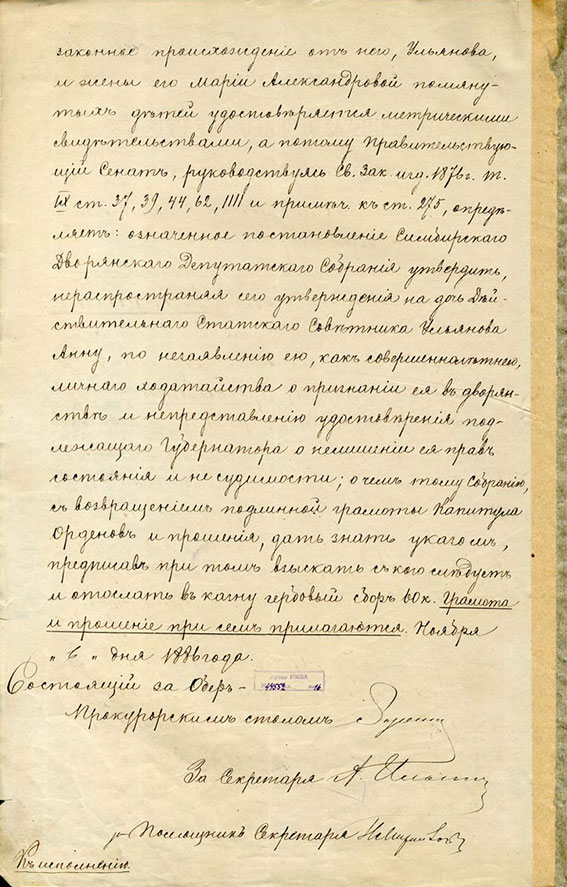 законное происхожденіе отъ него, Ульянова,
и жены его Маріи Александровой помяну-
тыхъ дѣтей удостовѣряется метрическими
свидѣтельствами, а потому Правительствую-
щій Сенатъ, руководствуясь Св. Зак. изд. 1876 г. т.
IX ст. 37, 39, 44, 62, 1111 и примѣч. къ ст. 275, опредѣ-
ляетъ: означенное постановленіе Симбирскаго
Дворянскаго Депутатскаго Собранія утвердить,
нераспространяя сего утвержденія на дочь Дѣй-
ствительнаго Статскаго Совѣтника Ульянова
Анну, по незаявленію ею, какъ совершеннолѣтнею,
личнаго ходатайства о признаніи ея въ дворян-
ствѣ и непредставленію удостовѣренія под-
лежащаго Губернатора о нелишеніи ея правъ
состоянія и не судимости; о чемъ тому Собранію,
съ возвращеніемъ подлинной грамоты Капитула
Орденовъ и прошенія, дать знать указомъ,
предписавъ при томъ взыскать съ кого слѣдуетъ
и отослать въ казну гербовый сборъ 80 к. Грамота
и прошеніе при семъ прилагаются. Ноября
„ 6 „ дня 1886 года.
Состоящій за Оберъ-
Прокурорскимъ столомъ
За Секретаря А.
за Помощникъ Секретаря
Къ исполненію.